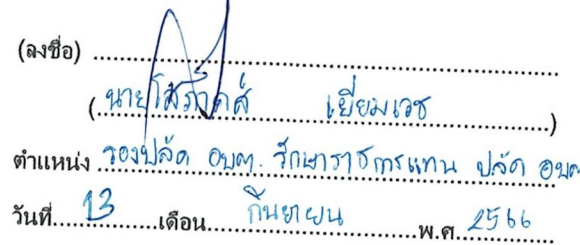 (ลงชื่อ)
(นาย เยี่ยมเวช)
ตำแหน่ง รองปลัด อบต. รักษาราชการแทน ปลัด อบต
วันที่ 13 เดือน กันยายน พ.ศ. 2566